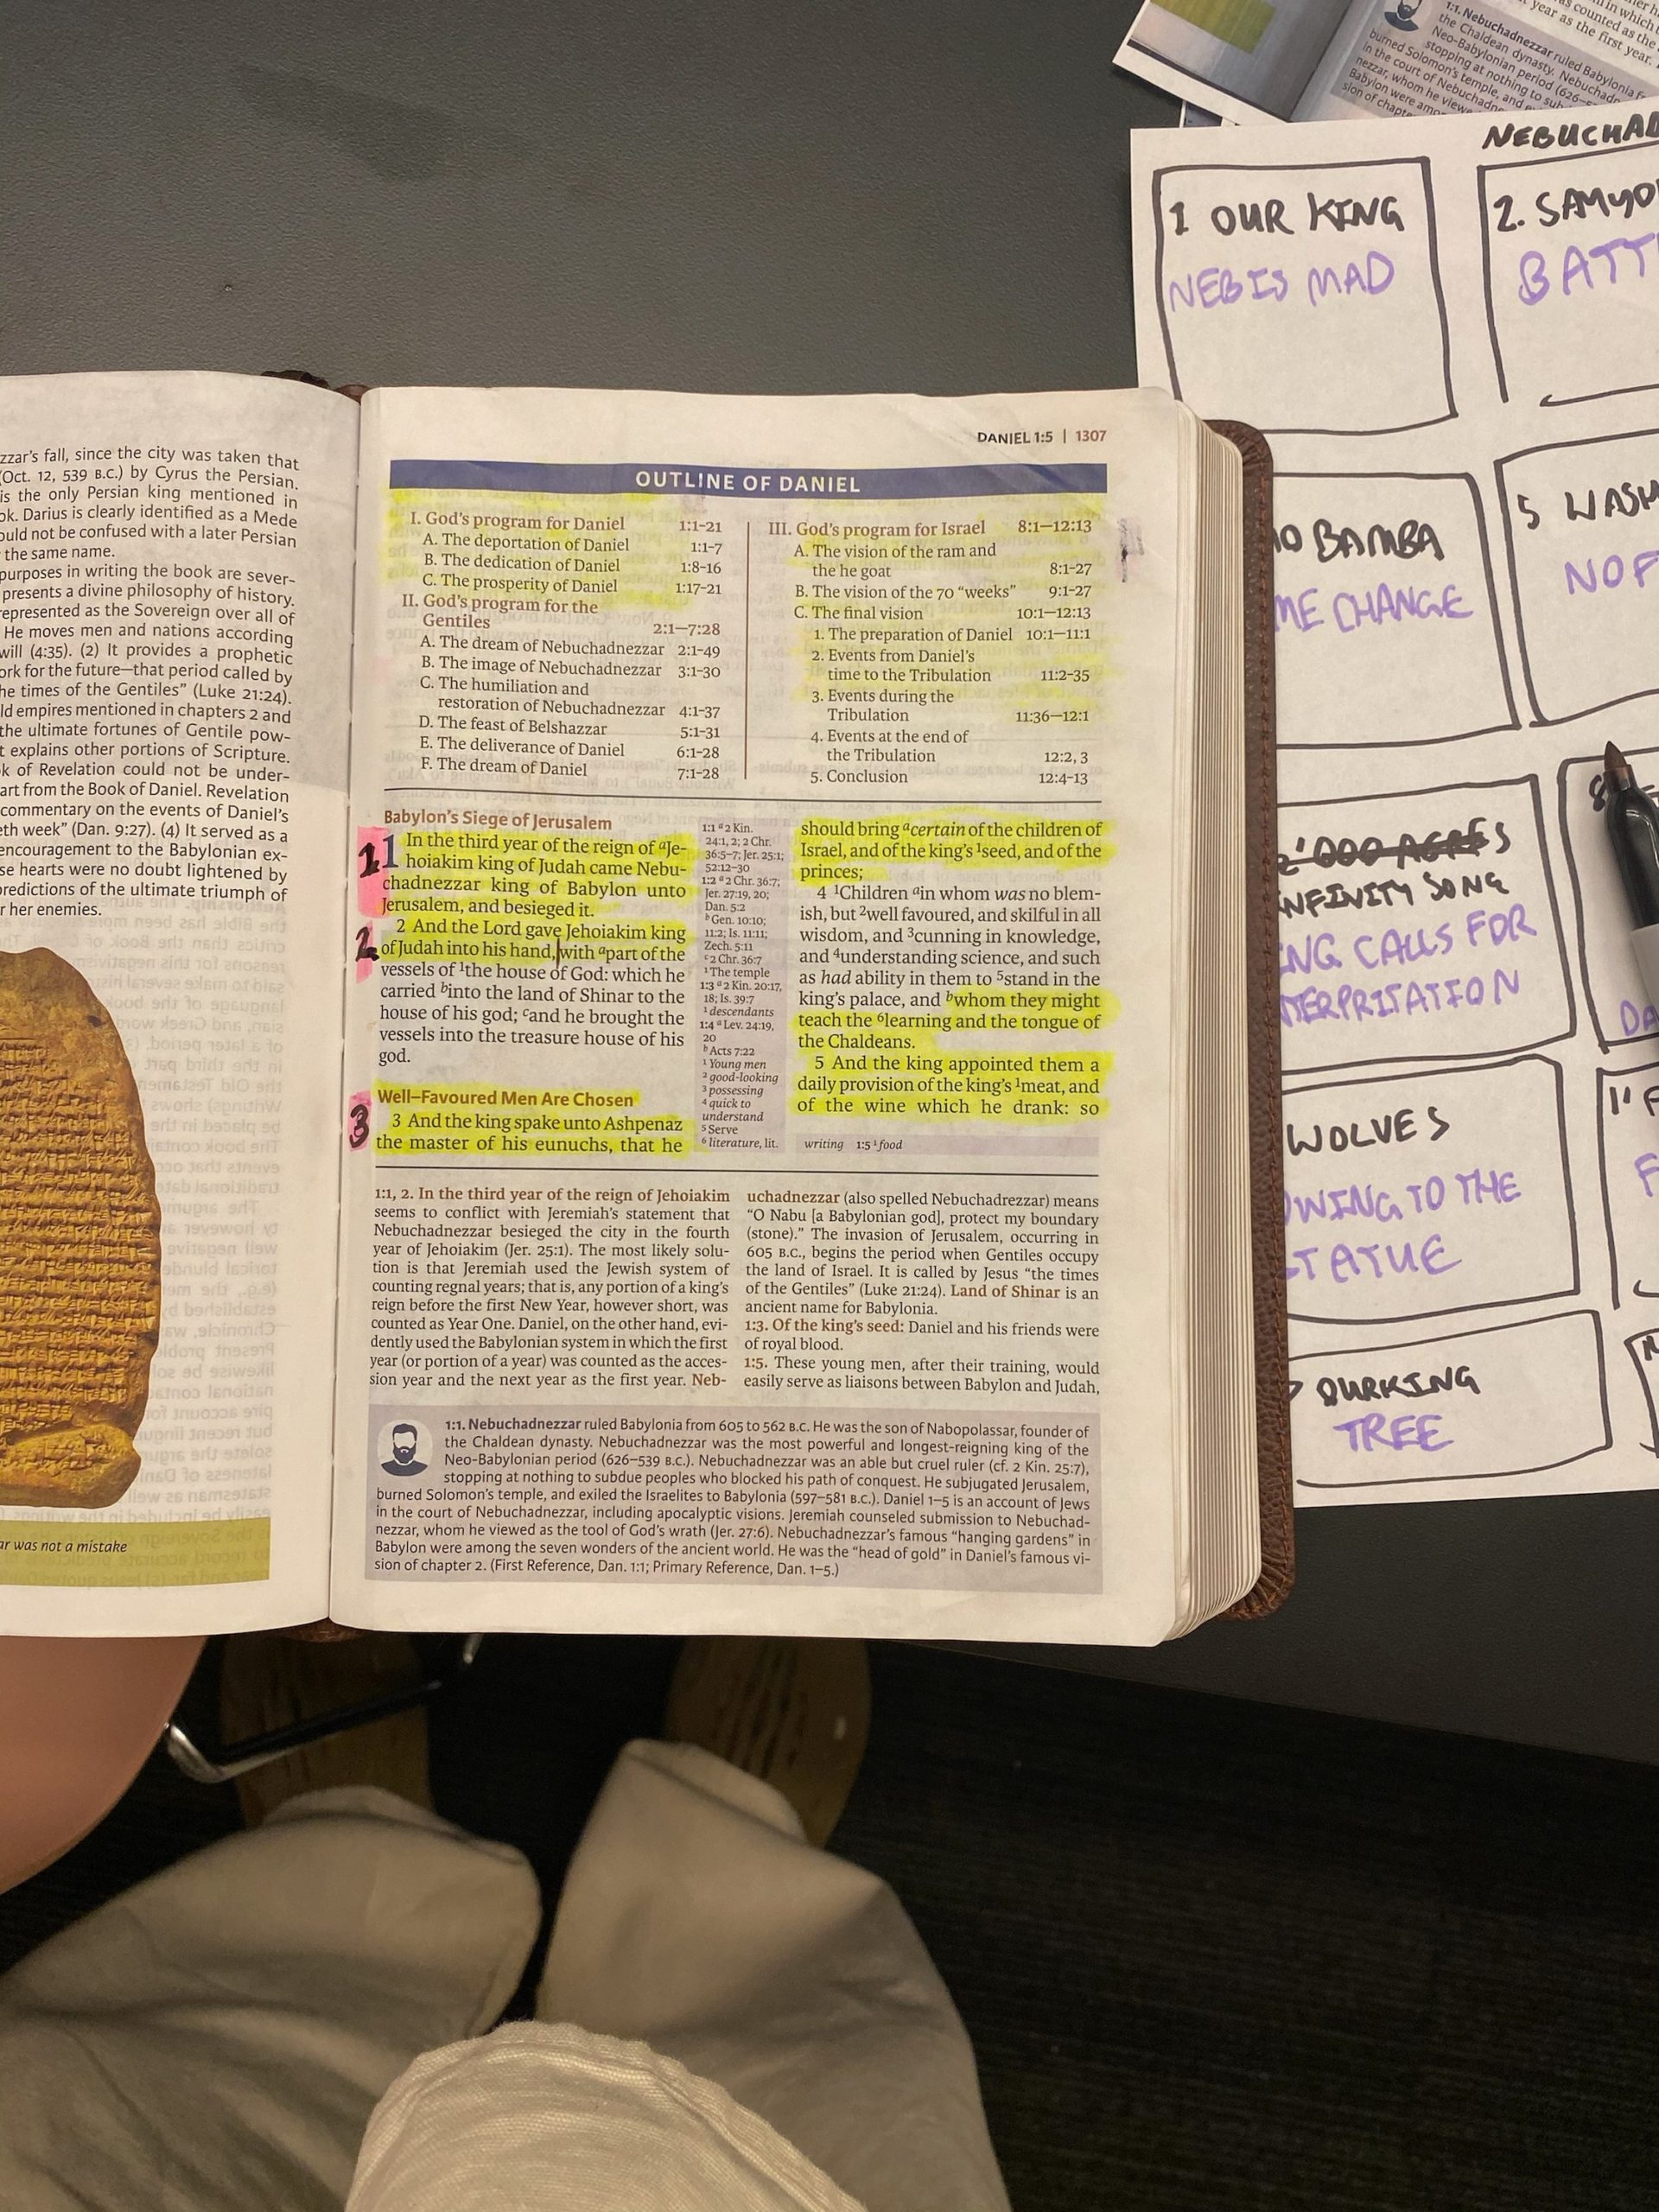 zzar's fall, since the city was taken that
(Oct. 12, 539 B.C.) by Cyrus the Persian.
is the only Persian king mentioned in
ok. Darius is clearly identified as a Mede
ould not be confused with a later Persian
the same name.
purposes in writing the book are sever-
presents a divine philosophy of history.
represented as the Sovereign over all of
He moves men and nations according
will (4:35). (2) It provides a prophetic
ork for the future—that period called by
he times of the Gentiles" (Luke 21:24).
ld empires mentioned in chapters 2 and
the ultimate fortunes of Gentile pow-
t explains other portions of Scripture.
k of Revelation could not be under-
art from the Book of Daniel. Revelation
commentary on the events of Daniel's
eth week" (Dan. 9:27). (4) It served as a
encouragement to the Babylonian ex-
se hearts were no doubt lightened by
predictions of the ultimate triumph of
r her enemies.
ar was not a mistake
DANIEL 1:5 | 1307
OUTLINE OF DANIEL
I. God's program for Daniel 1:1-21
A. The deportation of Daniel 1:1-7
B. The dedication of Daniel 1:8-16
C. The prosperity of Daniel 1:17-21
II. God's program for the
Gentiles 2:1—7:28
A. The dream of Nebuchadnezzar 2:1-49
B. The image of Nebuchadnezzar 3:1-30
C. The humiliation and
restoration of Nebuchadnezzar 4:1-37
D. The feast of Belshazzar 5:1-31
E. The deliverance of Daniel 6:1-28
F. The dream of Daniel 7:1-28
III. God's program for Israel 8:1—12:13
A. The vision of the ram and
the he goat 8:1-27
B. The vision of the 70 "weeks" 9:1-27
C. The final vision 10:1—12:13
1. The preparation of Daniel 10:1—11:1
2. Events from Daniel's
time to the Tribulation 11:2-35
3. Events during the
Tribulation 11:36—12:1
4. Events at the end of
the Tribulation 12:2, 3
5. Conclusion 12:4-13
Babylon's Siege of Jerusalem
1. 1 In the third year of the reign of ᵃJe-
hoiakim king of Judah came Nebu-
chadnezzar king of Babylon unto
Jerusalem, and besieged it.
2 And the Lord gave Jehoiakim king
2. of Judah into his hand, with ᵃpart of the
vessels of ¹the house of God: which he
carried ᵇinto the land of Shinar to the
house of his god; ᶜand he brought the
vessels into the treasure house of his
god.
Well–Favoured Men Are Chosen
3 3 And the king spake unto Ashpenaz
the master of his eunuchs, that he
1:1 ᵃ 2 Kin.
24:1, 2; 2 Chr.
36:5–7; Jer. 25:1;
52:12–30
1:2 ᵃ 2 Chr. 36:7;
Jer. 27:19, 20;
Dan. 5:2
ᵇ Gen. 10:10;
11:2; Is. 11:11;
Zech. 5:11
ᶜ 2 Chr. 36:7
¹ The temple
1:3 ᵃ 2 Kin. 20:17,
18; Is. 39:7
¹ descendants
1:4 ᵃ Lev. 24:19,
20
ᵇ Acts 7:22
¹ Young men
² good-looking
³ possessing
⁴ quick to
understand
⁵ Serve
⁶ literature, lit.
should bring ᵃcertain of the children of
Israel, and of the king's ¹seed, and of the
princes;
4 ¹Children ᵃin whom was no blem-
ish, but ²well favoured, and skilful in all
wisdom, and ³cunning in knowledge,
and ⁴understanding science, and such
as had ability in them to ⁵stand in the
king's palace, and ᵇwhom they might
teach the ⁶learning and the tongue of
the Chaldeans.
5 And the king appointed them a
daily provision of the king's ¹meat, and
of the wine which he drank: so
writing 1:5 ¹ food
1:1, 2. In the third year of the reign of Jehoiakim
seems to conflict with Jeremiah's statement that
Nebuchadnezzar besieged the city in the fourth
year of Jehoiakim (Jer. 25:1). The most likely solu-
tion is that Jeremiah used the Jewish system of
counting regnal years; that is, any portion of a king's
reign before the first New Year, however short, was
counted as Year One. Daniel, on the other hand, evi-
dently used the Babylonian system in which the first
year (or portion of a year) was counted as the acces-
sion year and the next year as the first year. Neb-
uchadnezzar (also spelled Nebuchadrezzar) means
"O Nabu [a Babylonian god], protect my boundary
(stone)." The invasion of Jerusalem, occurring in
605 B.C., begins the period when Gentiles occupy
the land of Israel. It is called by Jesus "the times
of the Gentiles" (Luke 21:24). Land of Shinar is an
ancient name for Babylonia.
1:3. Of the king's seed: Daniel and his friends were
of royal blood.
1:5. These young men, after their training, would
easily serve as liaisons between Babylon and Judah,
1:1. Nebuchadnezzar ruled Babylonia from 605 to 562 B.C. He was the son of Nabopolassar, founder of
the Chaldean dynasty. Nebuchadnezzar was the most powerful and longest-reigning king of the
Neo-Babylonian period (626–539 B.C.). Nebuchadnezzar was an able but cruel ruler (cf. 2 Kin. 25:7),
stopping at nothing to subdue peoples who blocked his path of conquest. He subjugated Jerusalem,
burned Solomon's temple, and exiled the Israelites to Babylonia (597–581 B.C.). Daniel 1–5 is an account of Jews
in the court of Nebuchadnezzar, including apocalyptic visions. Jeremiah counseled submission to Nebuchad-
nezzar, whom he viewed as the tool of God's wrath (Jer. 27:6). Nebuchadnezzar's famous "hanging gardens" in
Babylon were among the seven wonders of the ancient world. He was the "head of gold" in Daniel's famous vi-
sion of chapter 2. (First Reference, Dan. 1:1; Primary Reference, Dan. 1–5.)
in which
as counted as the
year as the first year.
1:1. Nebuchadnezzar ruled Babylonia
the Chaldean dynasty. Nebuchadn
Neo-Babylonian period (626–
stopping at nothing to sub
burned Solomon's temple, and
in the court of Nebuchadne
nezzar, whom he viewe
Babylon were amo
sion of chapte
NEBUCHAD
1 OUR KING
NEB IS MAD
2. SAMYO
BATT
O BAMBA
ME CHANGE
5 WASH
NO F
2'000 ACRES
INFINITY SONG
ING CALLS FOR
NTERPRITATION
8
DA
WOLVES
OWING TO THE
STATUE
11
F
OUR KING
TREE